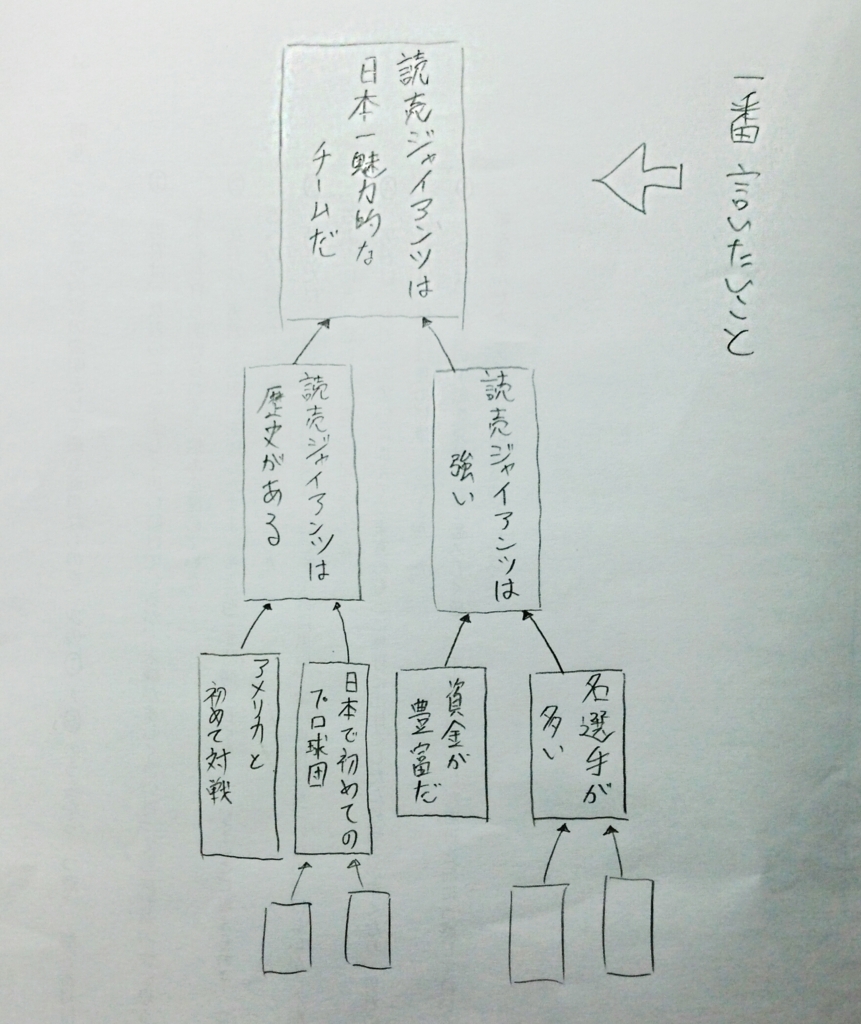 一番言いたいこと
読売ジャイアンツは
日本一魅力的な
チームだ
読売ジャイアンツは
強い
読売ジャイアンツは
歴史がある
名選手が
多い
資金が
豊富だ
日本で初めての
プロ球団
アメリカと
初めて対戦